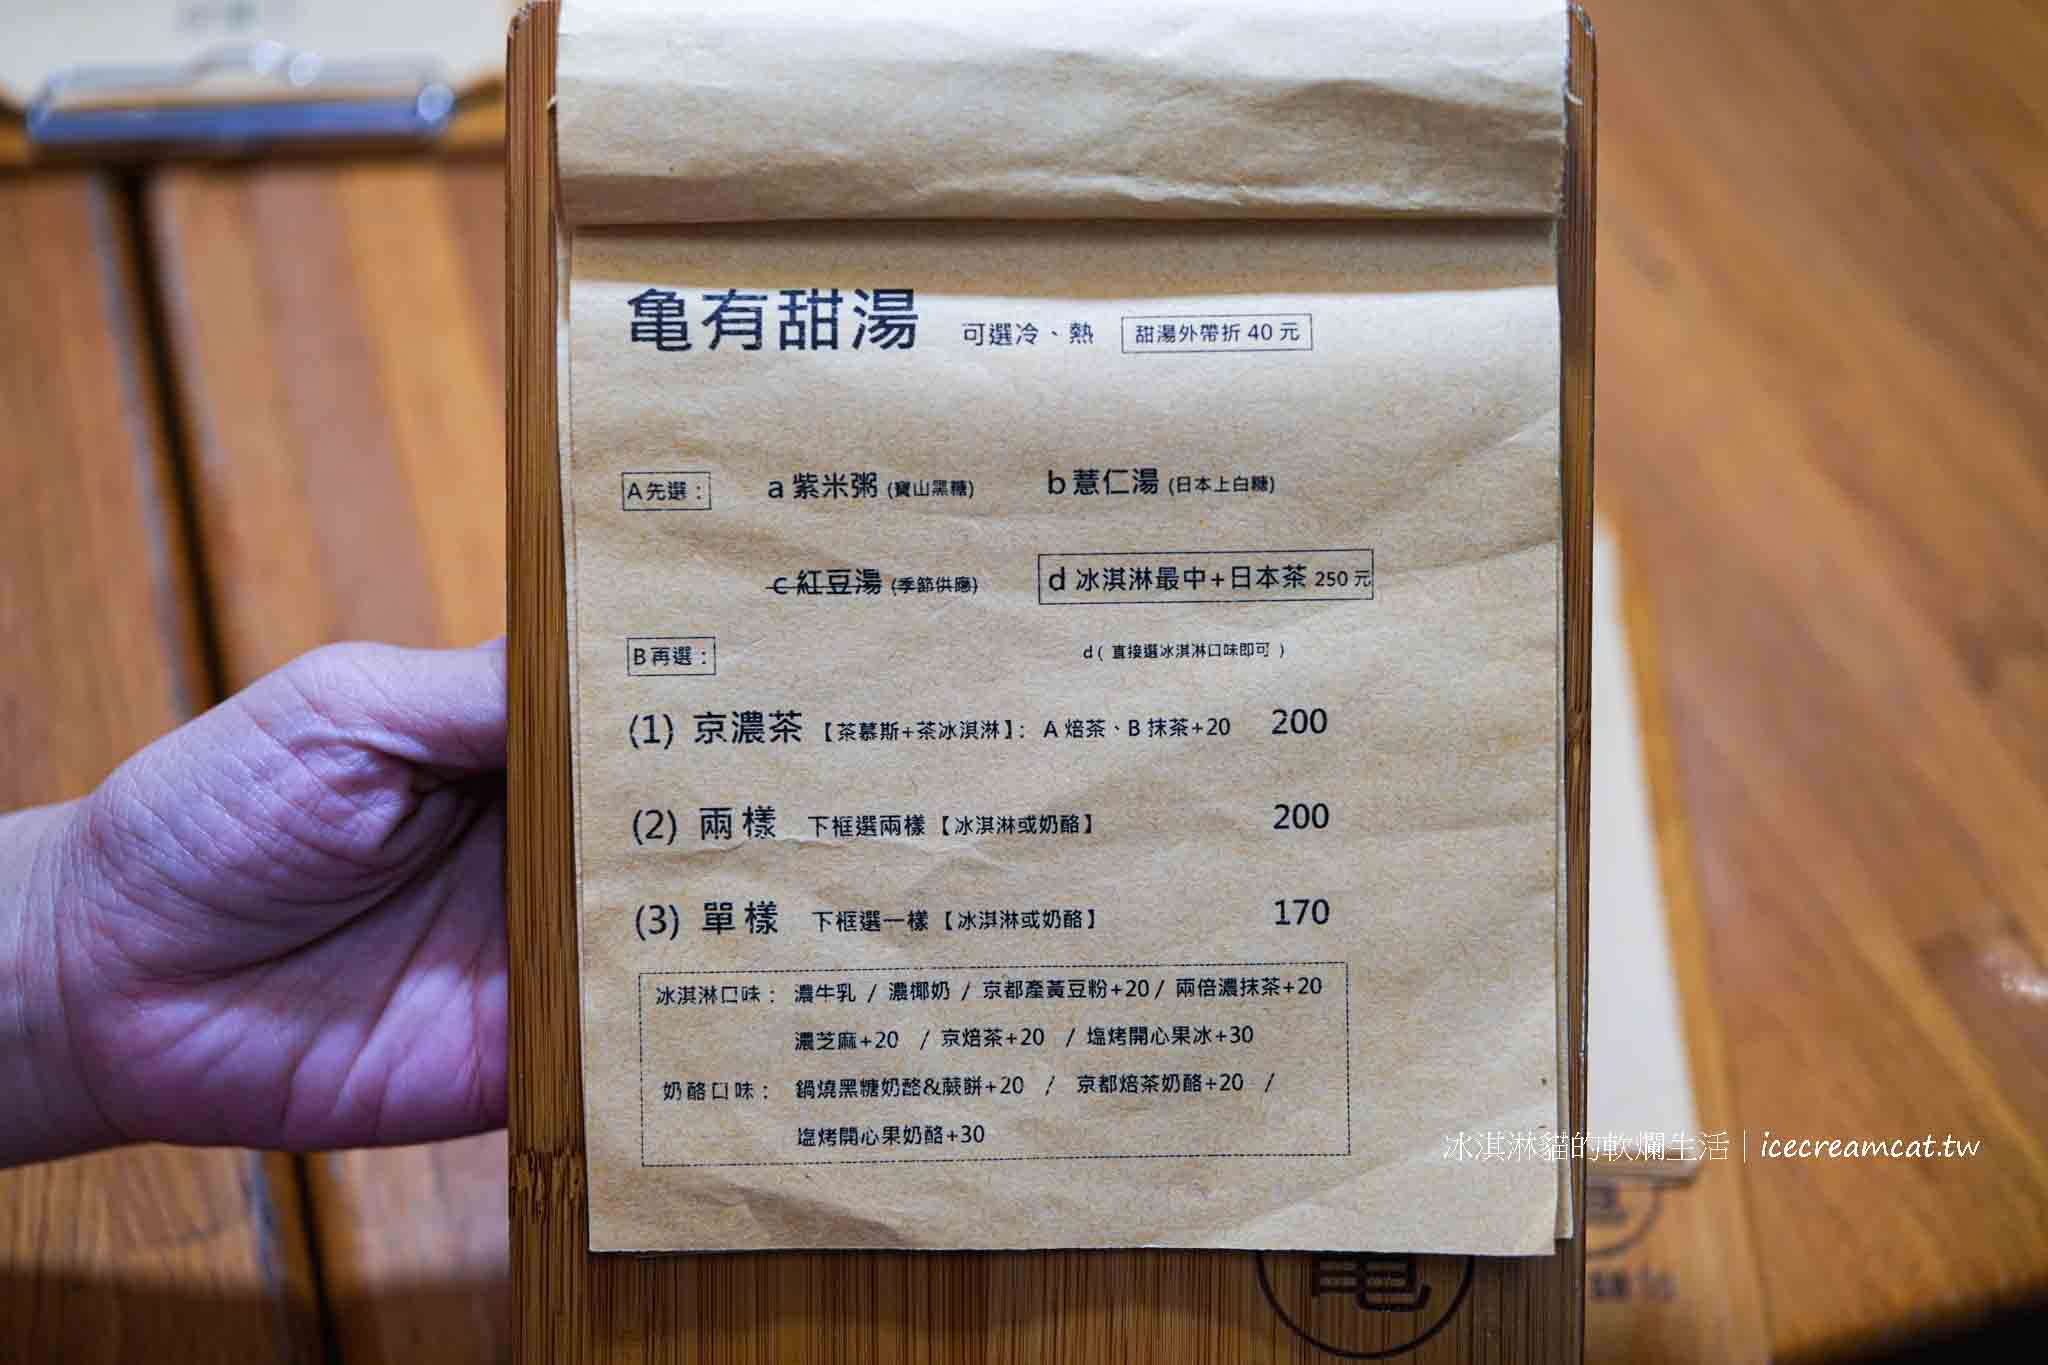 亀有甜湯 可選冷、熱 甜湯外帶折 40 元
A先選： a 紫米粥 (寶山黑糖) b 薏仁湯 (日本上白糖)
c 紅豆湯 (季節供應) d 冰淇淋最中+日本茶 250 元
B再選： d（直接選冰淇淋口味即可）
(1) 京濃茶 【茶慕斯+茶冰淇淋】： A 焙茶、B 抹茶+20 200
(2) 兩樣 下框選兩樣【冰淇淋或奶酪】 200
(3) 單樣 下框選一樣【冰淇淋或奶酪】 170
冰淇淋口味： 濃牛乳 / 濃椰奶 / 京都產黃豆粉+20 / 兩倍濃抹茶+20
濃芝麻+20 / 京焙茶+20 / 塩烤開心果冰+30
奶酪口味： 鍋燒黑糖奶酪&蕨餅+20 / 京都焙茶奶酪+20 /
塩烤開心果奶酪+30
冰淇淋貓的軟爛生活｜icecreamcat.tw
亀